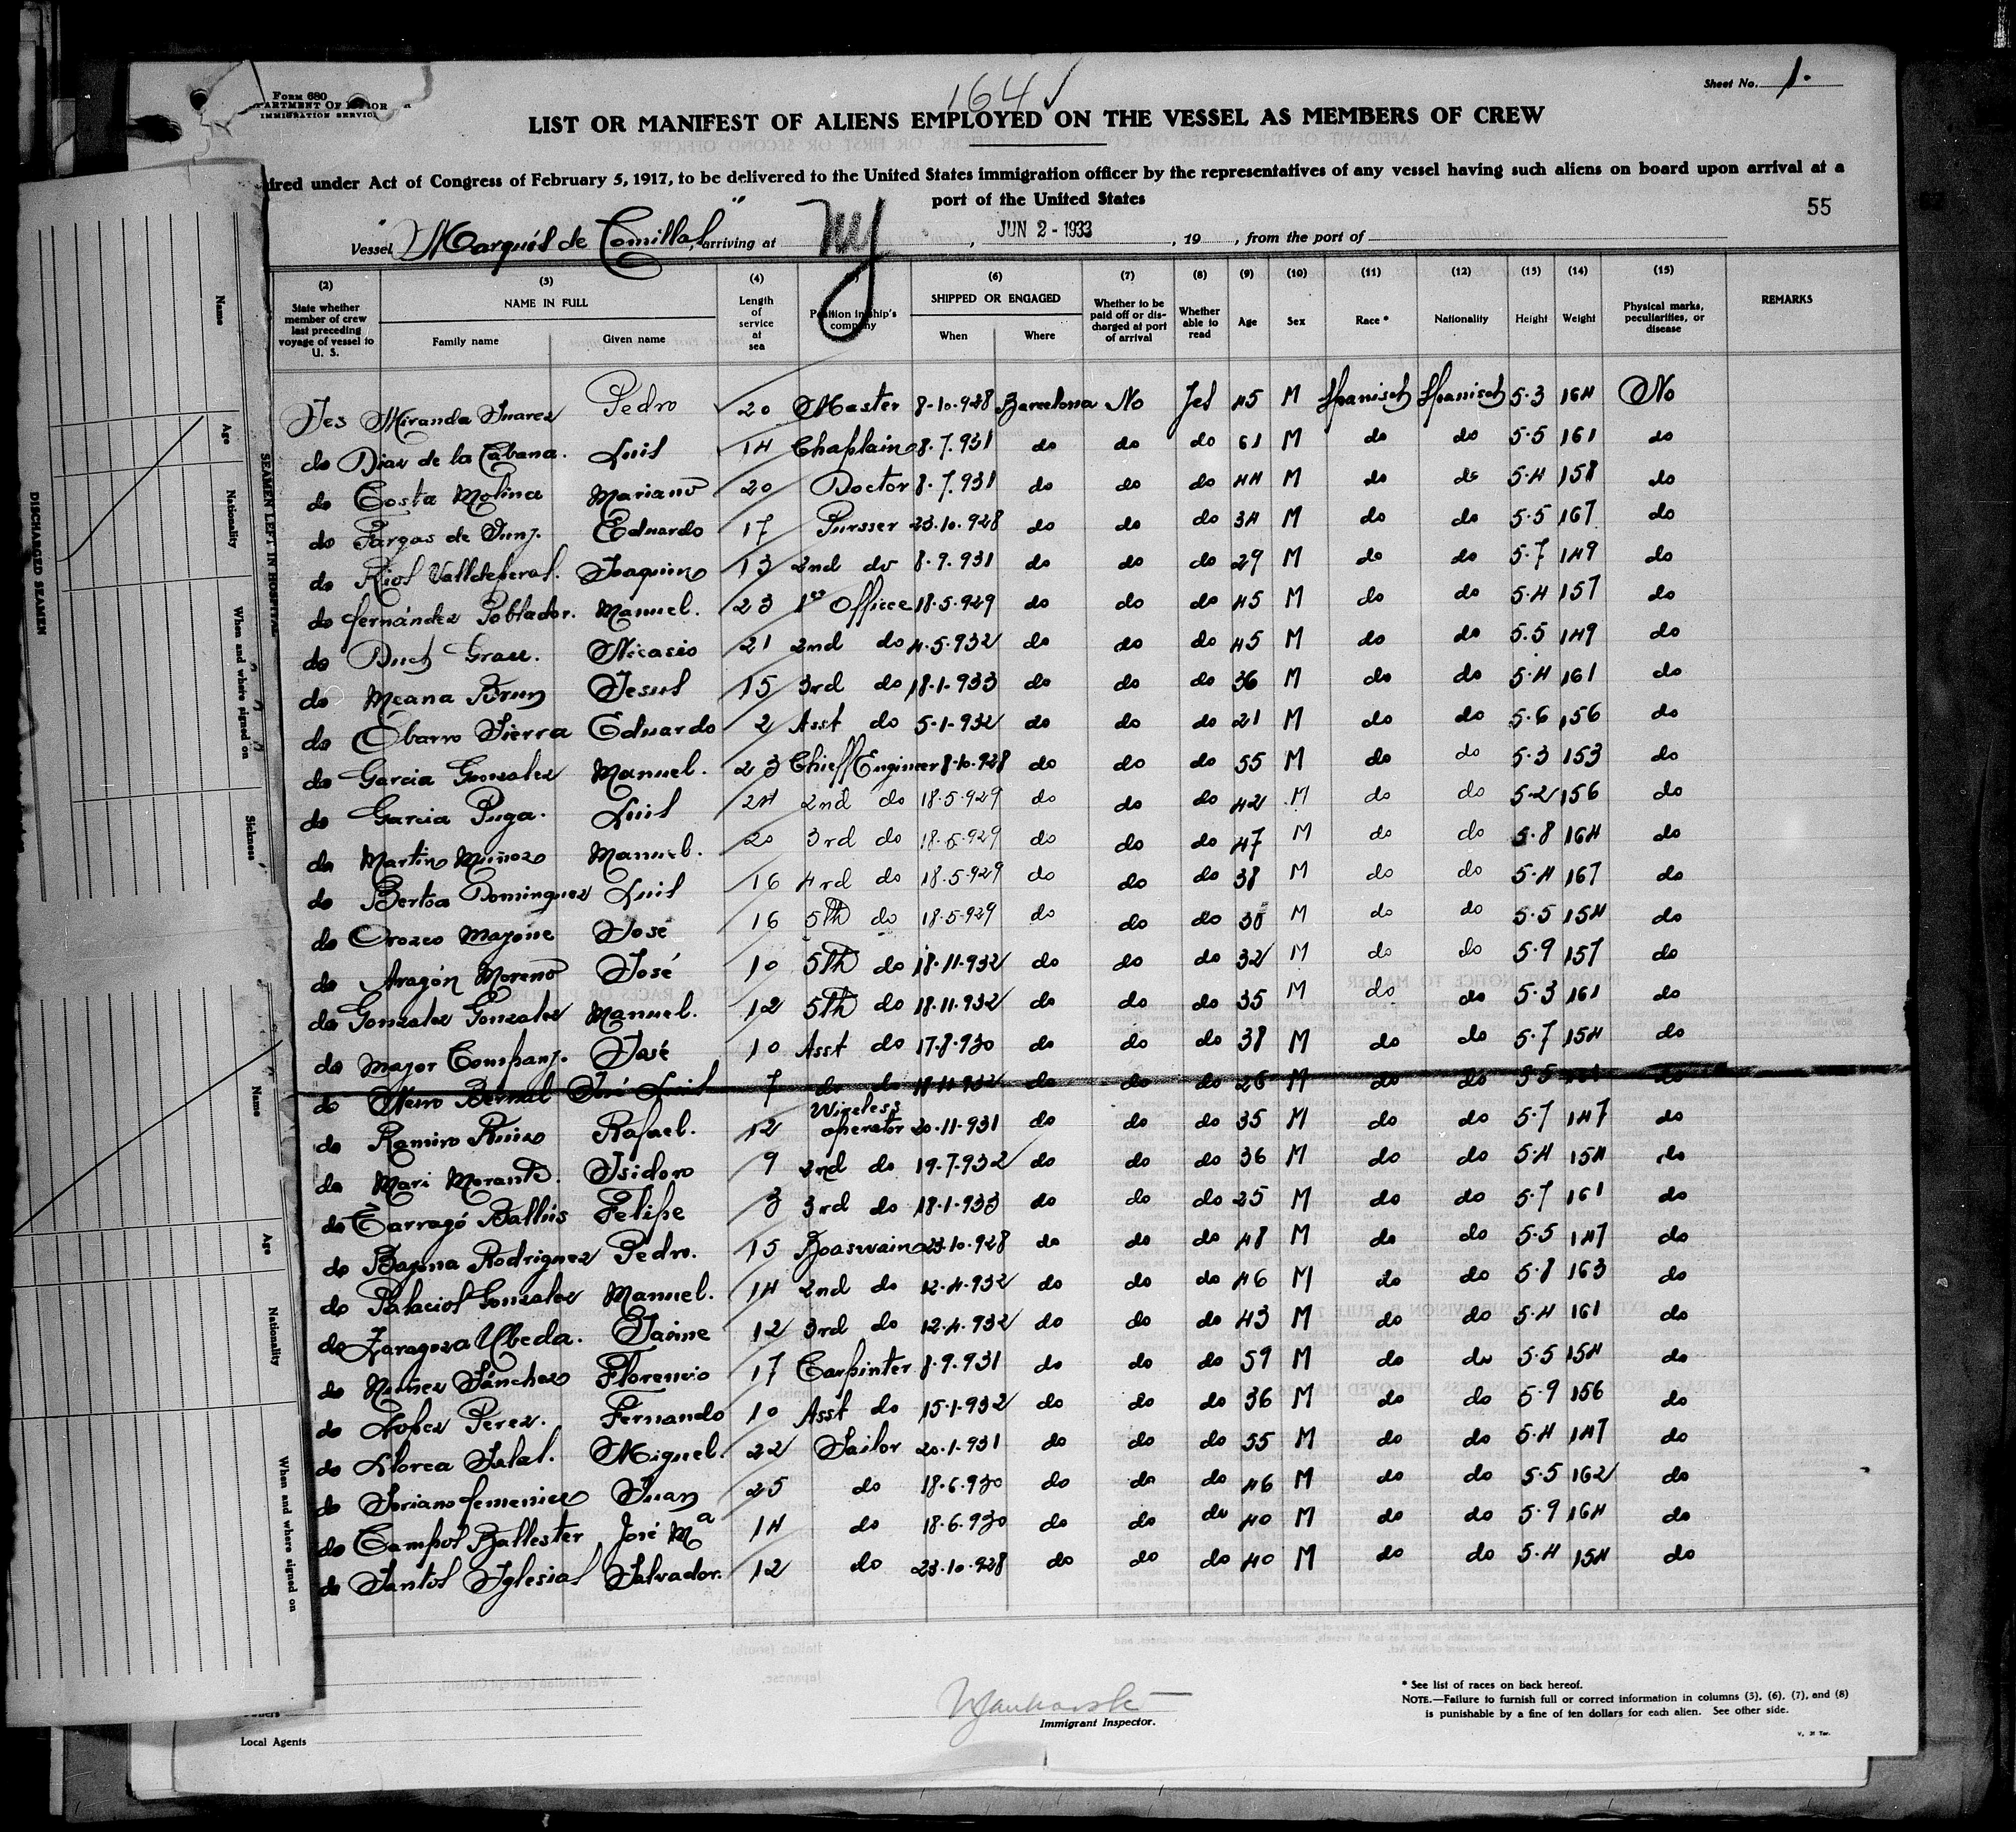 164 ✓
Sheet No. 1.
Form 680
DEPARTMENT OF LABOR
IMMIGRATION SERVICE
LIST OR MANIFEST OF ALIENS EMPLOYED ON THE VESSEL AS MEMBERS OF CREW
ired under Act of Congress of February 5, 1917, to be delivered to the United States immigration officer by the representatives of any vessel having such aliens on board upon arrival at a
port of the United States
55
Vessel "Marqués de Comillas", arriving at NY, JUN 2 - 1933, 19, from the port of
(2) (3) (4) (6) (7) (8) (9) (10) (11) (12) (13) (14) (15)
State whether member of crew last preceding voyage of vessel to U. S. NAME IN FULL Family name Given name Length of service at sea Position in ship's company SHIPPED OR ENGAGED When Where Whether to be paid off or discharged at port of arrival Whether able to read Age Sex Race * Nationality Height Weight Physical marks, peculiarities, or disease REMARKS
Yes Miranda Suarez Pedro 20 Master 8-10-928 Barcelona No Yes 45 M Spanisch Spanisch 5-3 164 No
do Diaz de la Cabana. Luis 14 Chaplain 8.7.931 do do do 61 M do do 5-5 161 do
do Costa Molina Mariano 20 Doctor 8.7.931 do do do 44 M do do 5-4 158 do
do Fargas de Eduardo 17 Pursser 23.10.928 do do do 34 M do do 5-5 167 do
do Rios Joaquin 13 2nd do 8-9-931 do do do 29 M do do 5-7 149 do
do fernández Poblador. Manuel. 23 1er Officce 18-5-929 do do do 45 M do do 5-4 157 do
do Duch Grau. Nicasio 21 2nd do 4-5-932 do do do 45 M do do 5.5 149 do
do Meana Brun Jesus 15 3rd do 18-1-933 do do do 36 M do do 5-4 161 do
do Obarro Sierra Eduardo 2 Asst do 5-1-932 do do do 21 M do do 5-6 156 do
do Garcia Gonzalez Manuel. 23 Chieff Engineer 8-10-928 do do do 55 M do do 5-3 153 do
do Garcia Puga. Luis 24 2nd do 18-5-929 do do do 42 M do do 5-2 156 do
do Martin Muñoz Manuel. 20 3rd do 18-5-929 do do do 47 M do do 5-8 164 do
do Bertoa Dominguez Luis 16 4rd do 18-5-929 do do do 38 M do do 5-4 167 do
do Orozco José 16 5th do 18-5-929 do do do M do do 5-5 154 do
do Aragón Moreno José 10 5th do 18-11-932 do do do 32 M do do 5-9 157 do
do Gonzalez Gonzalez Manuel. 12 5th do 18-11-932 do do do 35 M do do 5-3 161 do
do Mayor Company. José 10 Asst do 17-8-930 do do do 38 M do do 5-7 154 do
do Bernal José Luis 7 do do 18-11-932 do do do 26 M do do 5-5 do
do Ramiro Ruizo Rafael. 12 Wireless operator 20-11-931 do do do 35 M do do 5-7 147 do
do Mari Morante. Isidoro 9 2nd do 19-7-932 do do do 36 M do do 5-4 154 do
do Tarragó Ballús Felipe 3 3rd do 18-1-933 do do do 25 M do do 5-7 161 do
do Bayona Rodriguez Pedro. 15 Boaswain 23-10-928 do do do 48 M do do 5-5 147 do
do Palacios Gonzalez Manuel. 14 2nd do 12-4-932 do do do 46 M do do 5-8 163 do
do Zaragoza Ubeda. Jaime 12 3rd do 12-4-932 do do do 43 M do do 5-4 161 do
do Nuñez Sánchez Florencio 17 Carpinter 8-9-931 do do do 59 M do do 5-5 154 do
do Lopez Perez. Fernando 10 Asst do 15-1-932 do do do 36 M do do 5-9 156 do
do Llorca Salas. Miguel. 22 Sailor 20-1-931 do do do 55 M do do 5-4 147 do
do Soriano femeniez Juan 25 do 18-6-930 do do do 46 M do do 5-5 162 do
do Campos Ballester José Ma 14 do 18-6-930 do do do 40 M do do 5-9 164 do
do Santos Iglesias Salvador. 12 do 23-10-928 do do do 40 M do do 5-4 154 do
Owners
Local Agents
Immigrant Inspector.
* See list of races on back hereof.
NOTE.—Failure to furnish full or correct information in columns (3), (6), (7), and (8)
is punishable by a fine of ten dollars for each alien. See other side.
DISCHARGED SEAMEN
SEAMEN LEFT IN HOSPITAL
Name
Age
Nationality
When and where signed on
Sickness
Name
Age
Nationality
When and where signed on